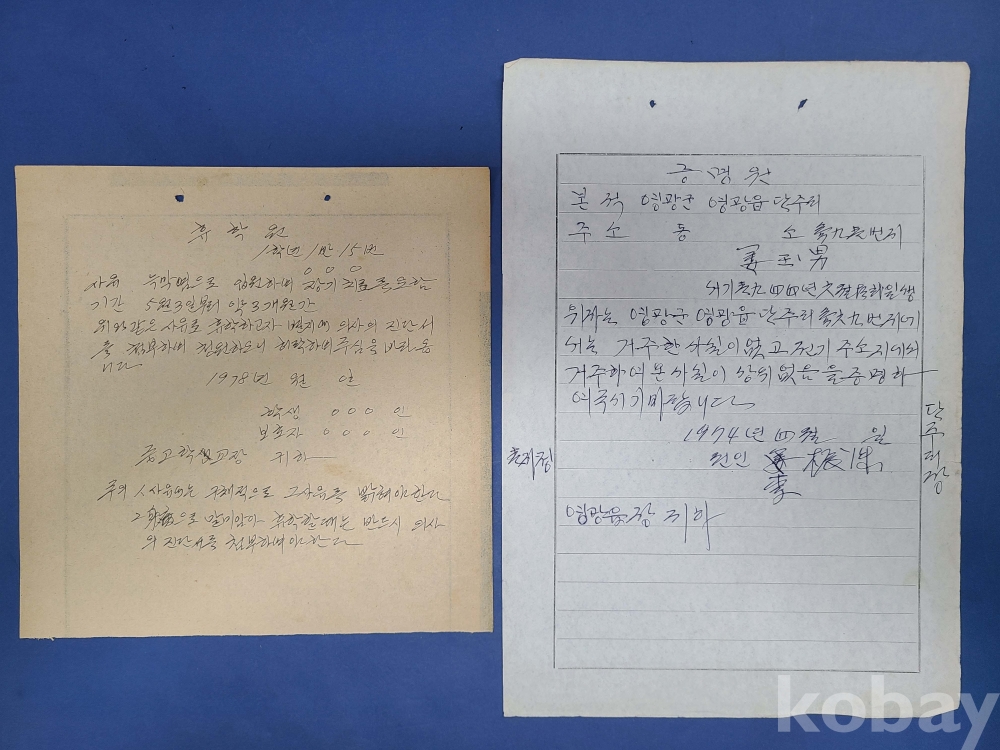 휴학원
1학년 1반 15번
○○○
사유 늑막염으로 입원하여 장기치료를 요함
기간 5월3일부터 약3개월간
위와 같은 사유로 휴학하고자 별지에 의사의 진단서
를 첨부하여 청원하오니 허락하여 주심을 바라옵
니다
1978년 월 일
학생 ○○○ 인
보호자 ○○○ 인
중고학교교장 귀하
주의 1. 사유에는 구체적으로 그 사유를 밝혀야 한다
2. 身病으로 말미암아 휴학할 때는 반드시 의사
의 진단서를 첨부하여야 한다
증명원
본적 영광군 영광읍 단주리
주소 동 소 九 번지
姜 男
서기 九四四年 生
위자는 영광군 영광읍 단주리 九 번지에
서는 거주한 사실이 없고 전기 주소지에서
거주하여 본 사실이 상위없음을 증명하
여주시기 바랍니다
1974년 四월 일
원인 李 根
단주리장
영광읍장 귀하
kobay